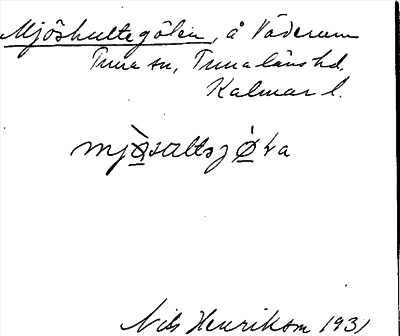 Mjöshultegölen, å Väderum
Tuna sn, Tunaläns hd.
Kalmar l.
mjòsaltsjǿka
Nils Henrikson 1931